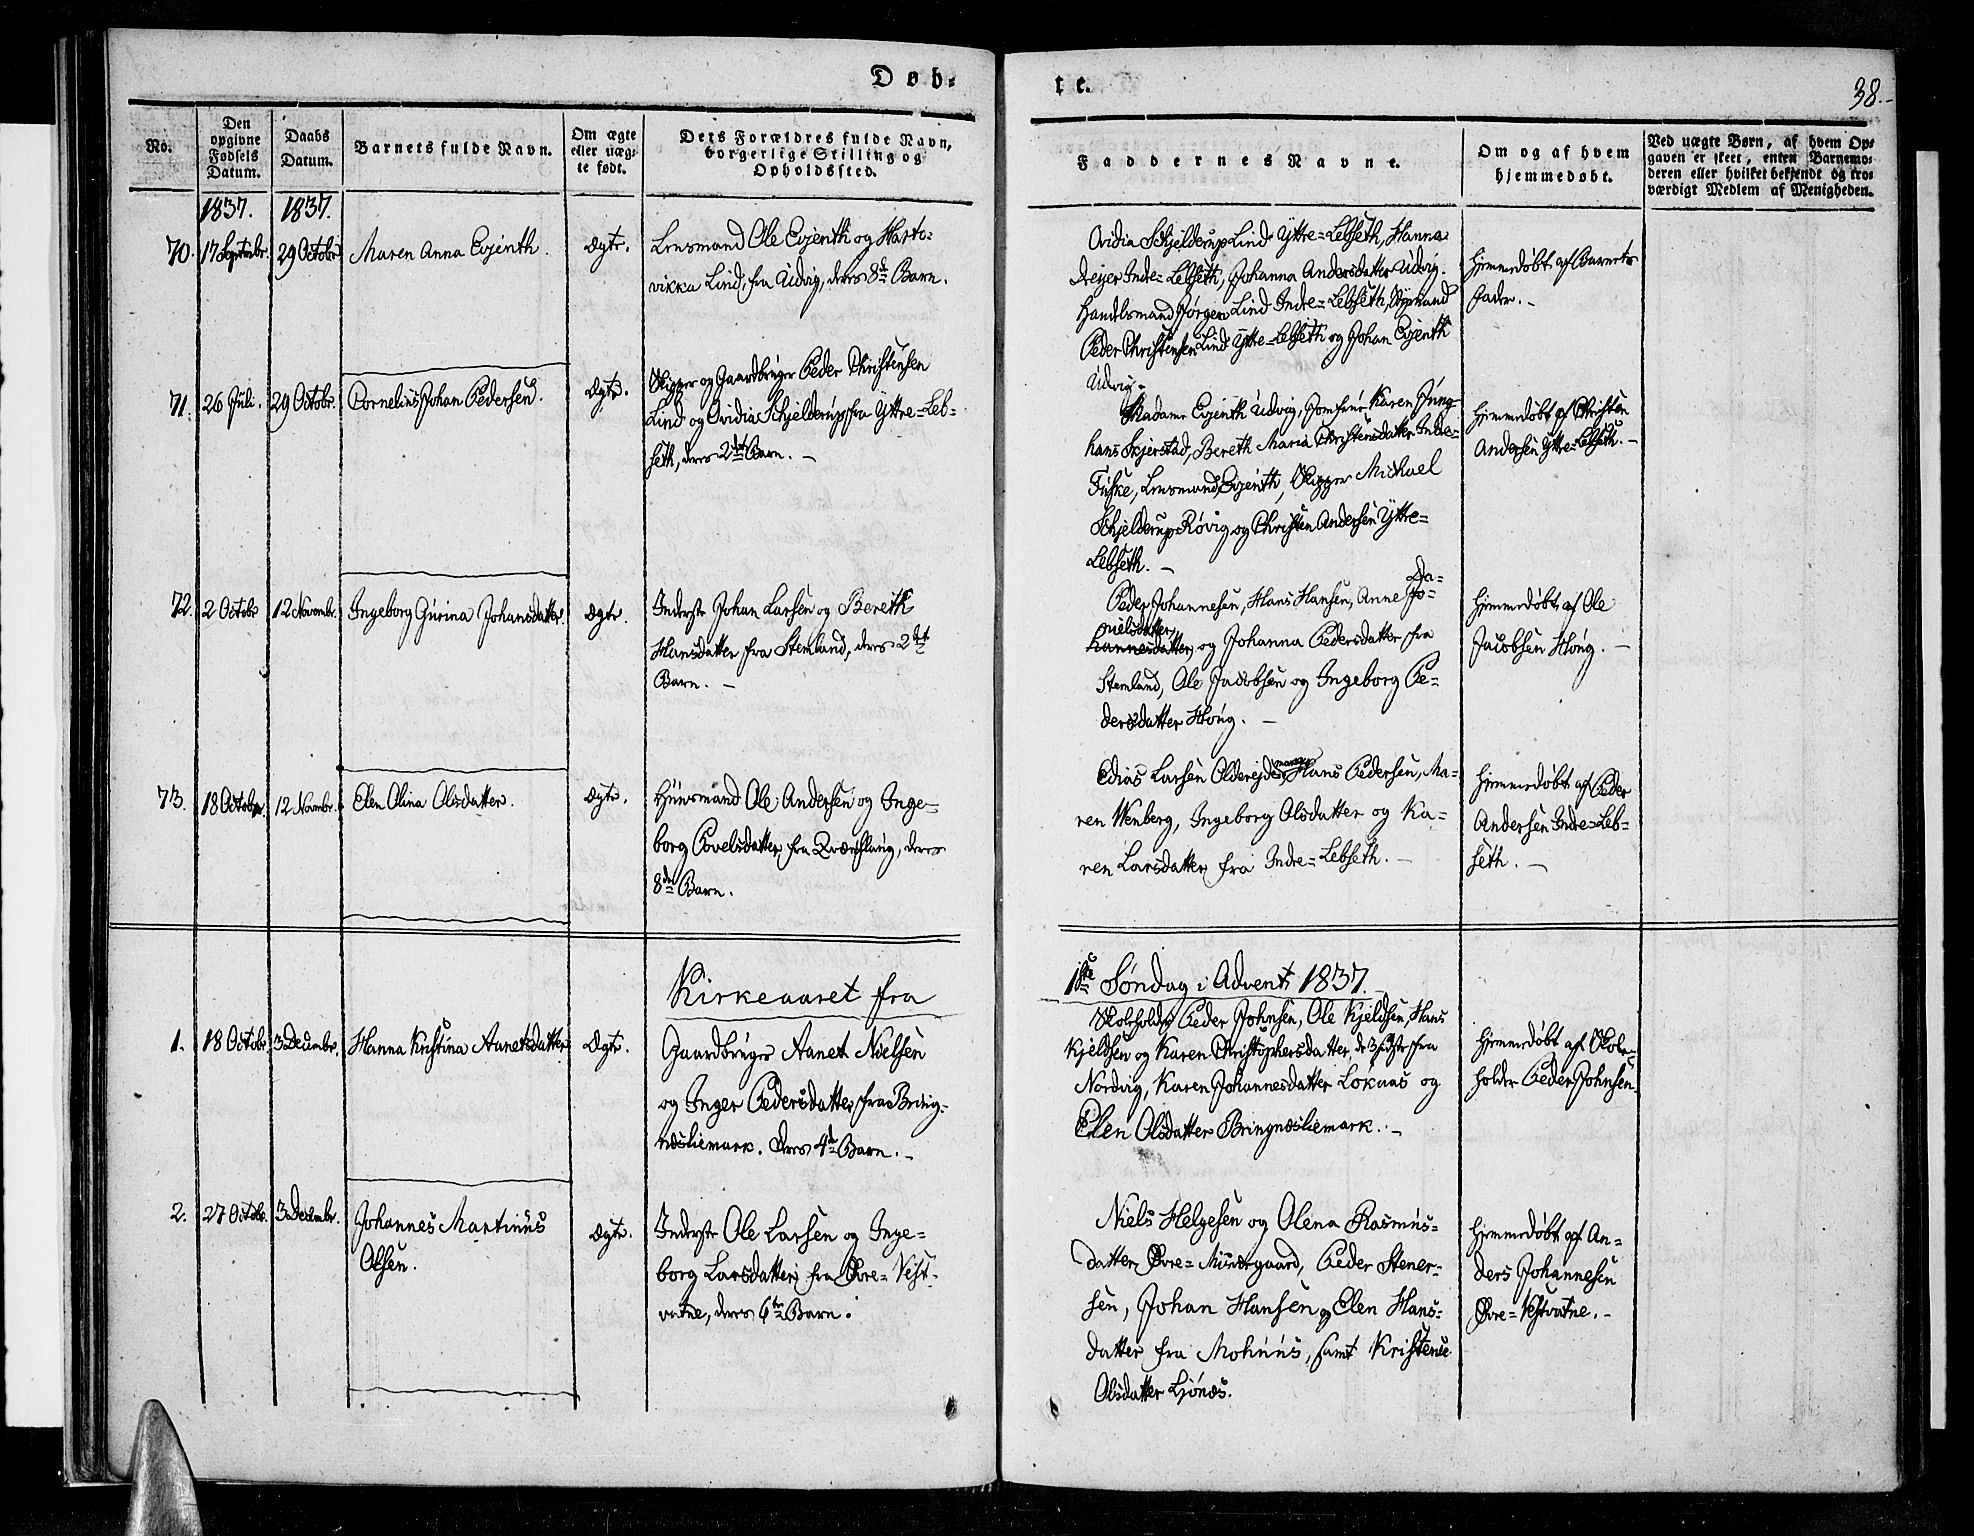 Døb-
te.
38.-
No.
Den opgivne Fødsels Datum.
Daabs Datum.
Barnets fulde Navn.
Om ægte eller uægte født.
Dets Forældres fulde Navn, borgerlige Stilling og Opholdssted.
Faddernes Navne.
Om og af hvem hjemmedøbt.
Ved uægte Børn, af hvem Opgaven er skeet, enten Barnemoderen eller hvilket bekjendt og troværdigt Medlem af Menigheden.
1837.
1837.
70.
17 Septmbr.
29 Octobr
Maren Anna Evjenth.
Ægte.
Lensmand Ole Evjenth og Harto-
vikka Lind, fra Udvig, deres 8de Barn.
Ovidia Schjelderup Lind Yttre-Lebseth, Hanna
Dreijer Indre-Lebseth, Johanna Andersdatter Udvig.
Handelsmand Jørgen Lind Indre-Lebseth,
Peder Christensen Lind Yttre-Lebseth og Johan Evjenth
Udvig.
Hjemmedøbt af Barnets
Fader. -
71.
26 Juli.
29 Octobr.
Cornelius Johan Pedersen.
Ægte.
Skipper og Gaardbruger Peder Christensen
Lind og Ovidia Schjelderup fra Yttre-Leb-
seth, deres 2det Barn. -
Madame Evjenth Udvig, Jomfrue Karen Jung-
hans Skjerstad, Bereth Maria Christensdatter Indre-
Fuske, Lensmand Evjenth, Skipper Michael
Schjelderup Røvig og Christen Andersen Yttre-
Lebseth. -
Hjemmedøbt af Christen
Andersen Yttre-Lebseth. -
72.
2 Octobr
12 Novembr.
Ingeborg Gurina Johansdatter.
Ægte.
Inderst Johan Larsen og Bereth
Hansdatter fra Stemland, deres 2det
Barn. -
Peder Johannesen, Hans Hansen, Anne Jo-
Da-
nielsdatter
hannesdatter, og Johanna Pedersdatter fra
Stemland, Ole Jacobsen og Ingeborg Pe-
dersdatter Houg. -
Hjemmedøbt af Ole
Jacobsen Houg. -
73.
18 Octobr.
12 Novmbr.
Elen Olina Olsdatter.
Ægte.
Huusmand Ole Andersen og Inge-
borg Povelsdatter, fra Qvænflaug, deres
8de Barn.
Edias Larsen Hans Pedersen, Ma-
ren Wenberg, Ingeborg Olsdatter og Ka-
ren Larsdatter fra Indre-Lebseth. -
Hjemmedøbt af Peder
Andersen Indre-Leb-
seth. -
Kirkeaaret fra
1ste Søndag i Advent 1837.
1.
18 Octobr.
3 Decembr.
Hanna Kristina Aanetsdatter
Ægte.
Gaardbruger Aanet Nielsen
og Inger Pedersdatter fra Bring-
næsliemark. Deres 4de Barn. -
Skoleholder Peder Johnsen, Ole Kjeldsen, Hans
Kjeldsen og Karen Christophersdatter, de 3 sidste fra
Nordvig, Karen Johannesdatter Løkaas og
Elen Olsdatter Bringnæsliemark. -
Hjemmedøbt af Skole-
holder Peder Johnsen.
2.
27 Octobr.
3 Decembr.
Johannes Martinus
Olsen.
Ægte.
Inderst Ole Larsen og Inge-
borg Larsdatter fra Øvre-Vest-
vatne, deres 6te Barn.
Niels Helgesen og Olena Rasmus-
datter Øvre-Misværgaard, Peder Stener-
sen, Johan Hansen og Elen Hans-
datter fra Mohuus, samt Kristense
Olsdatter Ljønæs.
Hjemmedøbt af An-
ders Johannesen
Øvre-Vestvatne. -